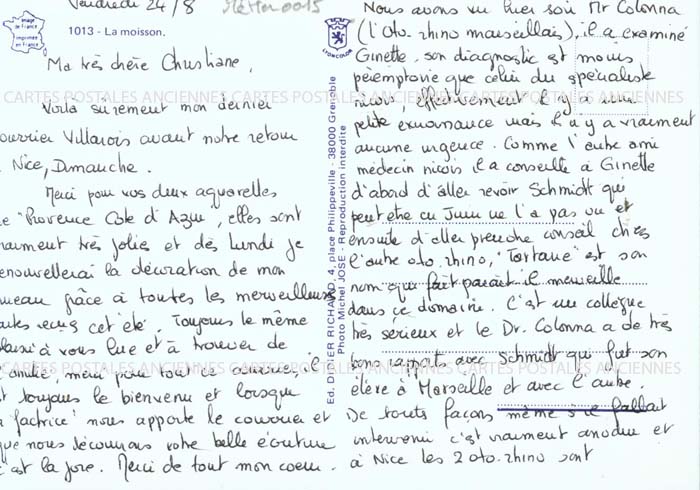 Vendredi 24/8
1013 - La moisson.
Image de France
imprimée en France
LYONCOLOR
Ma très chère Christiane,
Voila sûrement mon dernier
courrier Villarois avant notre retour
Nice, Dimanche.
Merci pour vos deux aquarelles
"Provence Cote d'Azur", elles sont
vraiment très jolies et dès lundi je
renouvellerai la décoration de mon
bureau grâce à toutes les merveilleuses
cartes reçues cet été. Toujours le même
plaisir à vous lire et à trouver de
merci pour tout ce courrier, il
est toujours le bienvenu et lorsque
la factrice nous apporte le courrier et
que nous découvrons votre belle écriture
c'est la joie. Merci de tout mon coeur.
Ed. DIDIER RICHARD, 4, place Philippeville - 38000 Grenoble
Photo Michel JOSÉ - Reproduction interdite
Nous avons vu hier soir Mr Colonna
(l'Oto. rhino marseillais), il a examiné
Ginette, son diagnostic est moins
péremptoire que celui du spécialiste
nicois, effectivement il y a une
petite excroissance mais il n'y a vraiment
aucune urgence. Comme l'autre ami
médecin nicois il a conseillé à Ginette
d'abord d'aller revoir Schmidt qui
peut être en Juin ne l'a pas vu et
ensuite d'aller prendre conseil chez
l'autre oto. rhino, "Tortane" est son
nom qui fait parait il merveille
dans ce domaine. C'est un collègue
très sérieux et le Dr. Colonna a de très
bons rapports avec Schmidt qui fut son
élève à Marseille et avec l'autre.
De touts façons même s'il fallait
intervenir c'est vraiment anodin et
à Nice les 2 oto. rhino sont
CARTES POSTALES ANCIENNES CARTES POSTALES ANCIENNES CARTES POSTALES ANCIENNES
CARTES POSTALES ANCIENNES CARTES POSTALES ANCIENNES CARTES POSTALES ANCIENNES